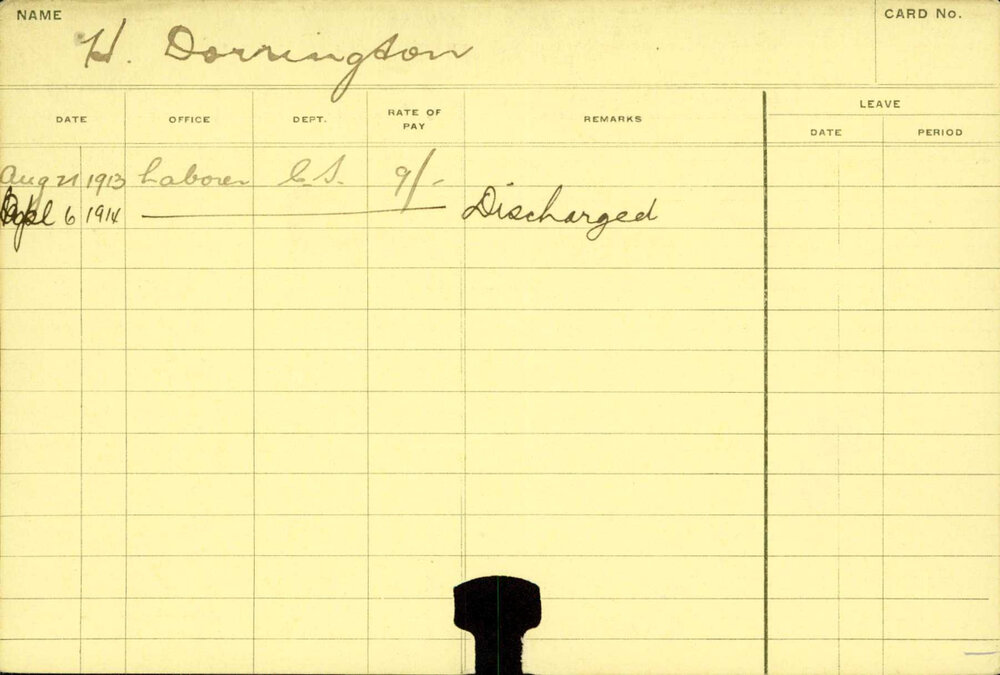 NAME
CARD No.
H. Dorrington
DATE OFFICE DEPT. RATE OF PAY REMARKS LEAVE
DATE PERIOD
Aug 21 1913 Laborer C.S. 9/-
6 1914 Discharged